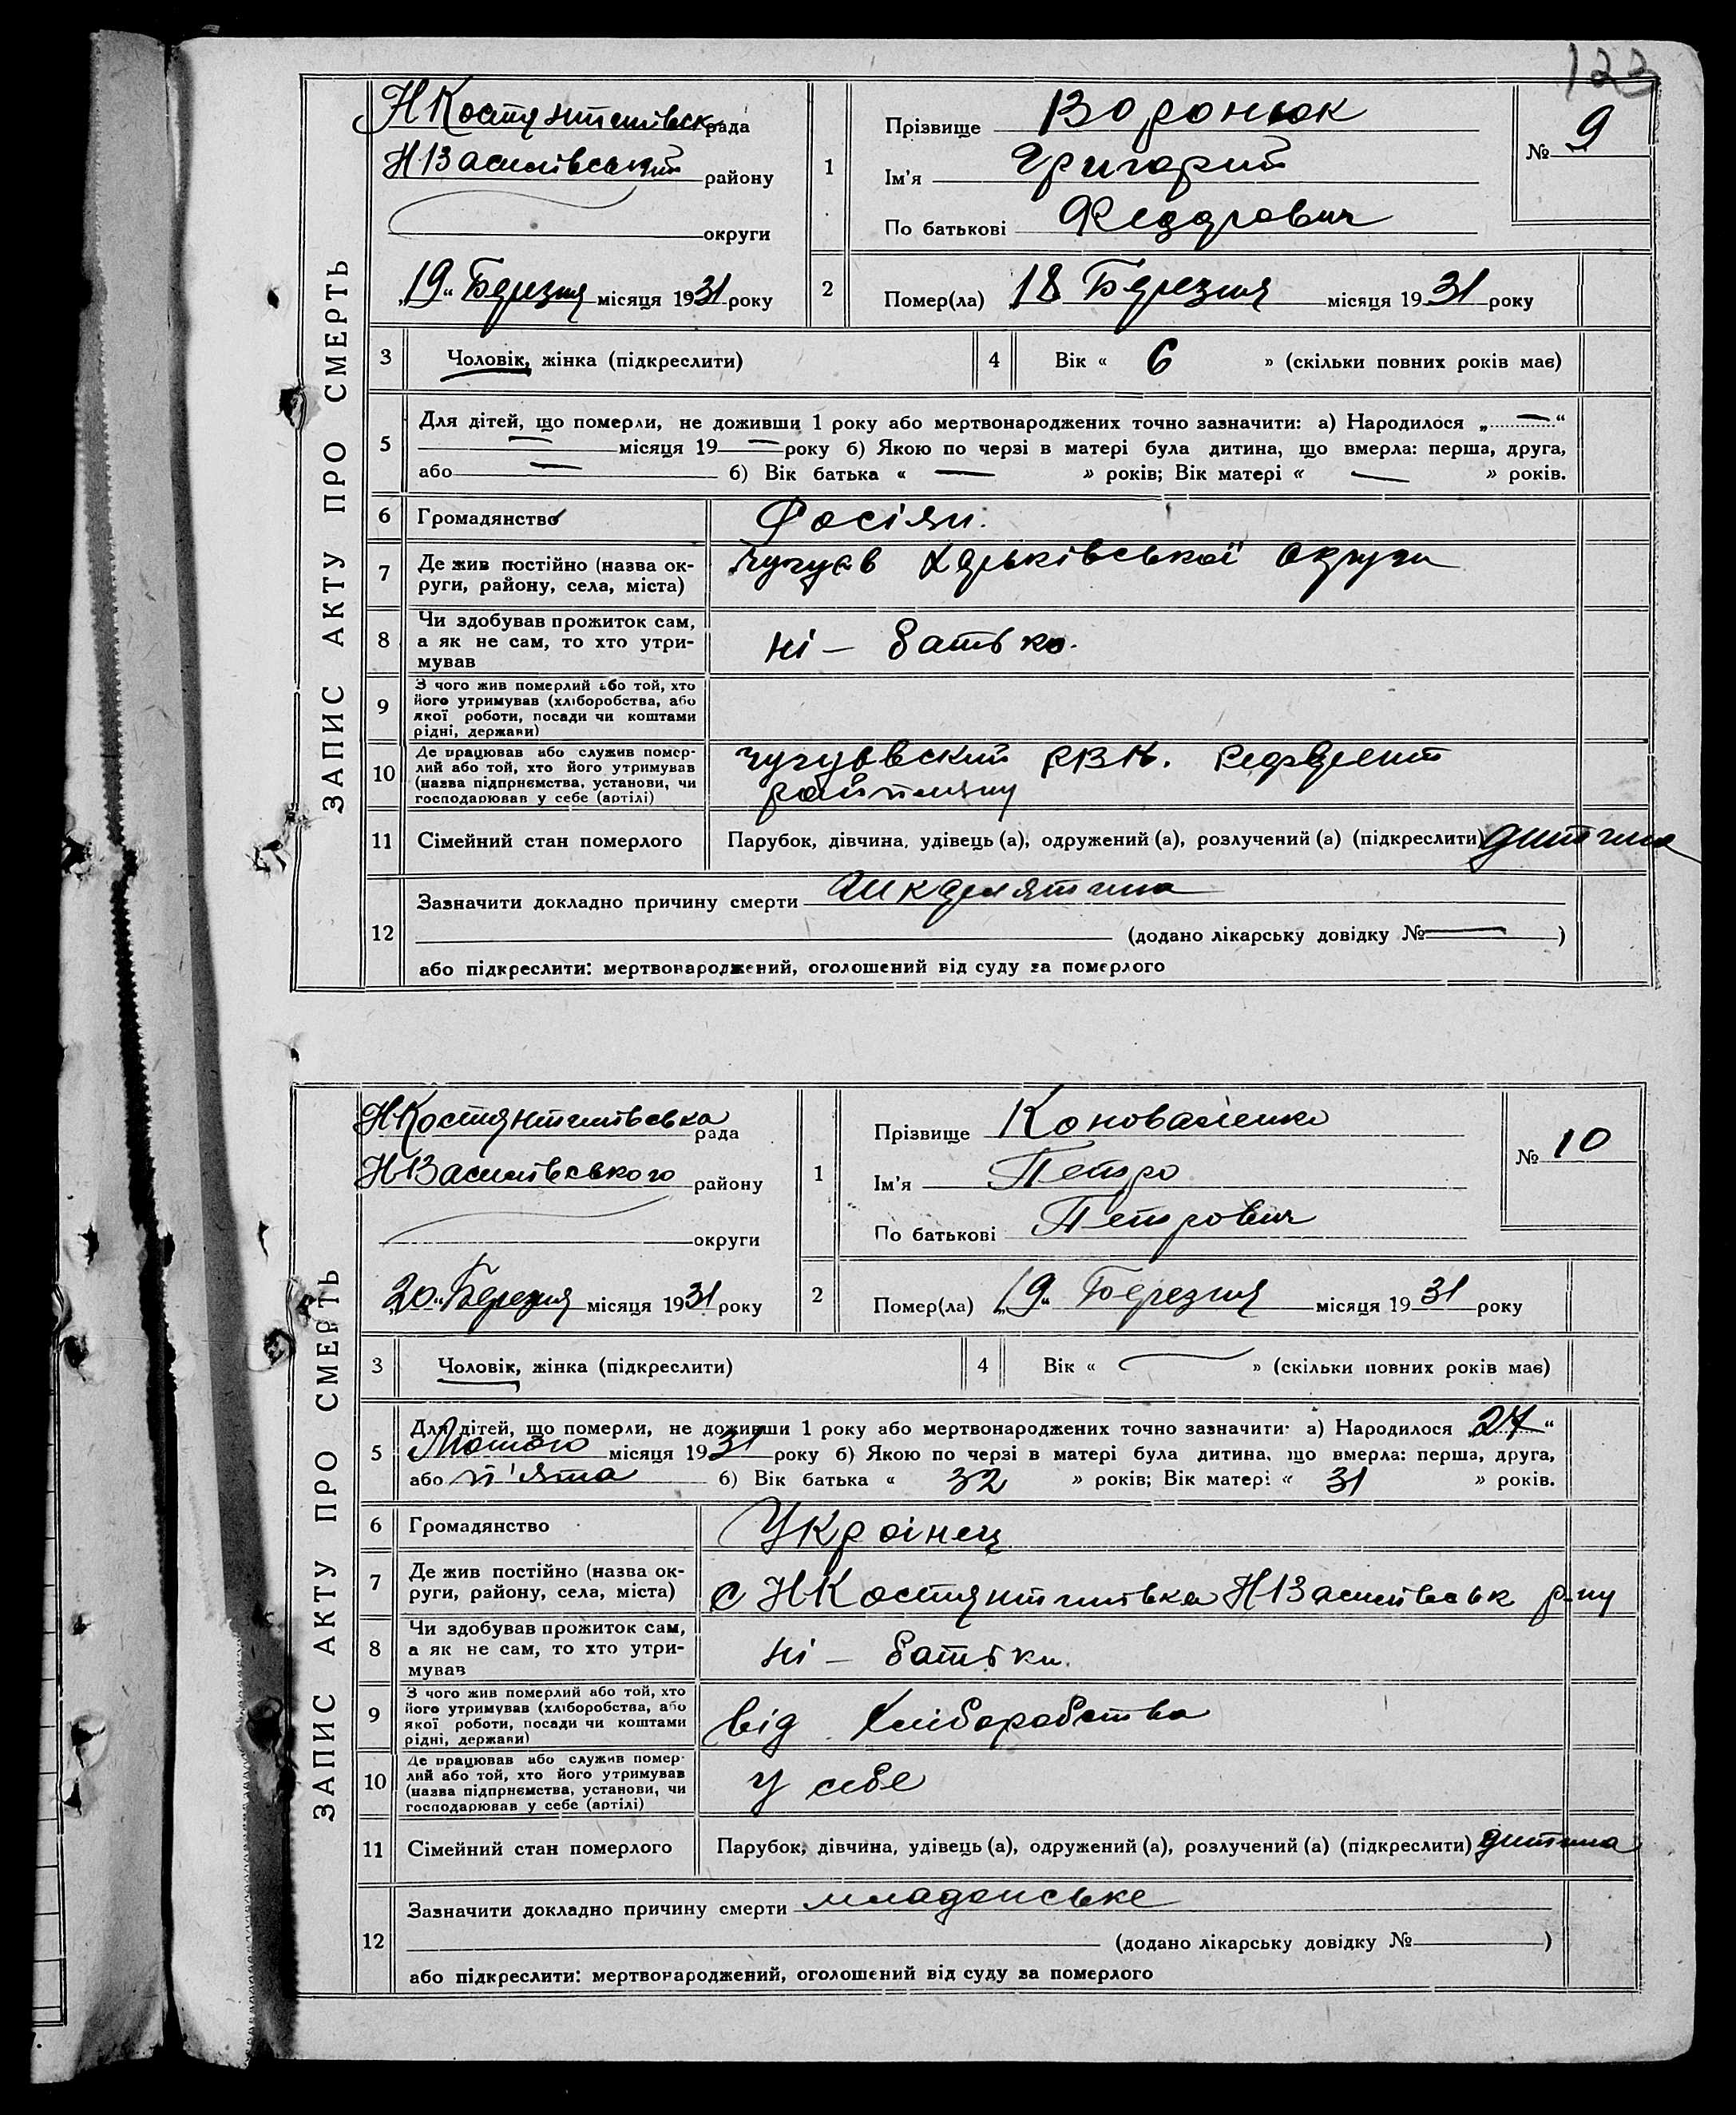 122
ЗАПИС АКТУ ПРО СМЕРТЬ
Н Костянтинівськ рада
Н-Василівський району
округи
„19“ Березня місяця 1931 року
1
Прізвище Воронюк
Ім'я Григорий
По батькові Федорович
№ 9
2
Помер(ла) 18 Березня місяця 1931 року
3 Чоловік, жінка (підкреслити)
4 Вік « 6 » (скільки повних років має)
5 Для дітей, що померли, не доживши 1 року або мертвонароджених точно зазначити: а) Народилося „ — “
— місяця 19 — року б) Якою по черзі в матері була дитина, що вмерла: перша, друга,
або — б) Вік батька « — » років; Вік матері « — » років.
6 Громадянство Росіян.
7 Де жив постійно (назва ок-
руги, району, села, міста) Чугуєв Харьківської округи
8 Чи здобував прожиток сам,
а як не сам, то хто утри-
мував ні – батько.
9 З чого жив померлий або той, хто
його утримував (хліборобства, або
якої роботи, посади чи коштами
рідні, держави)
10 Де працював або служив помер-
лий або той, хто його утримував
(назва підприємства, установи, чи
господарював у себе (артілі) Чугуевский РВК. Референт
райпляну
11 Сімейний стан померлого Парубок, дівчина, удівець (а), одружений (а), розлучений (а) (підкреслити) дитина
12 Зазначити докладно причину смерти
(додано лікарську довідку № — )
або підкреслити: мертвонароджений, оголошений від суду за померлого
ЗАПИС АКТУ ПРО СМЕРТЬ
Н-Костянтинівська рада
Н-Василівського району
округи
„20“ Березня місяця 1931 року
1
Прізвище Коноваленко
Ім'я Петро
По батькові Петрович
№ 10
2
Помер(ла) „19“ Березня місяця 1931 року
3 Чоловік, жінка (підкреслити)
4 Вік « — » (скільки повних років має)
5 Для дітей, що померли, не доживши 1 року або мертвонароджених точно зазначити: а) Народилося „27“
Лютого місяця 1931 року б) Якою по черзі в матері була дитина, що вмерла: перша, друга,
або п'ята б) Вік батька « 32 » років; Вік матері « 31 » років.
6 Громадянство Украінец
7 Де жив постійно (назва ок-
руги, району, села, міста) с Н-Костянтинівка Н-Василівськ р-ну
8 Чи здобував прожиток сам,
а як не сам, то хто утри-
мував ні – батьки.
9 З чого жив померлий або той, хто
його утримував (хліборобства, або
якої роботи, посади чи коштами
рідні, держави) від Хліборобства
10 Де працював або служив помер-
лий або той, хто його утримував
(назва підприємства, установи, чи
господарював у себе (артілі) У себе
11 Сімейний стан померлого Парубок, дівчина, удівець (а), одружений (а), розлучений (а) (підкреслити) дитина
12 Зазначити докладно причину смерти младенське
(додано лікарську довідку № )
або підкреслити: мертвонароджений, оголошений від суду за померлого